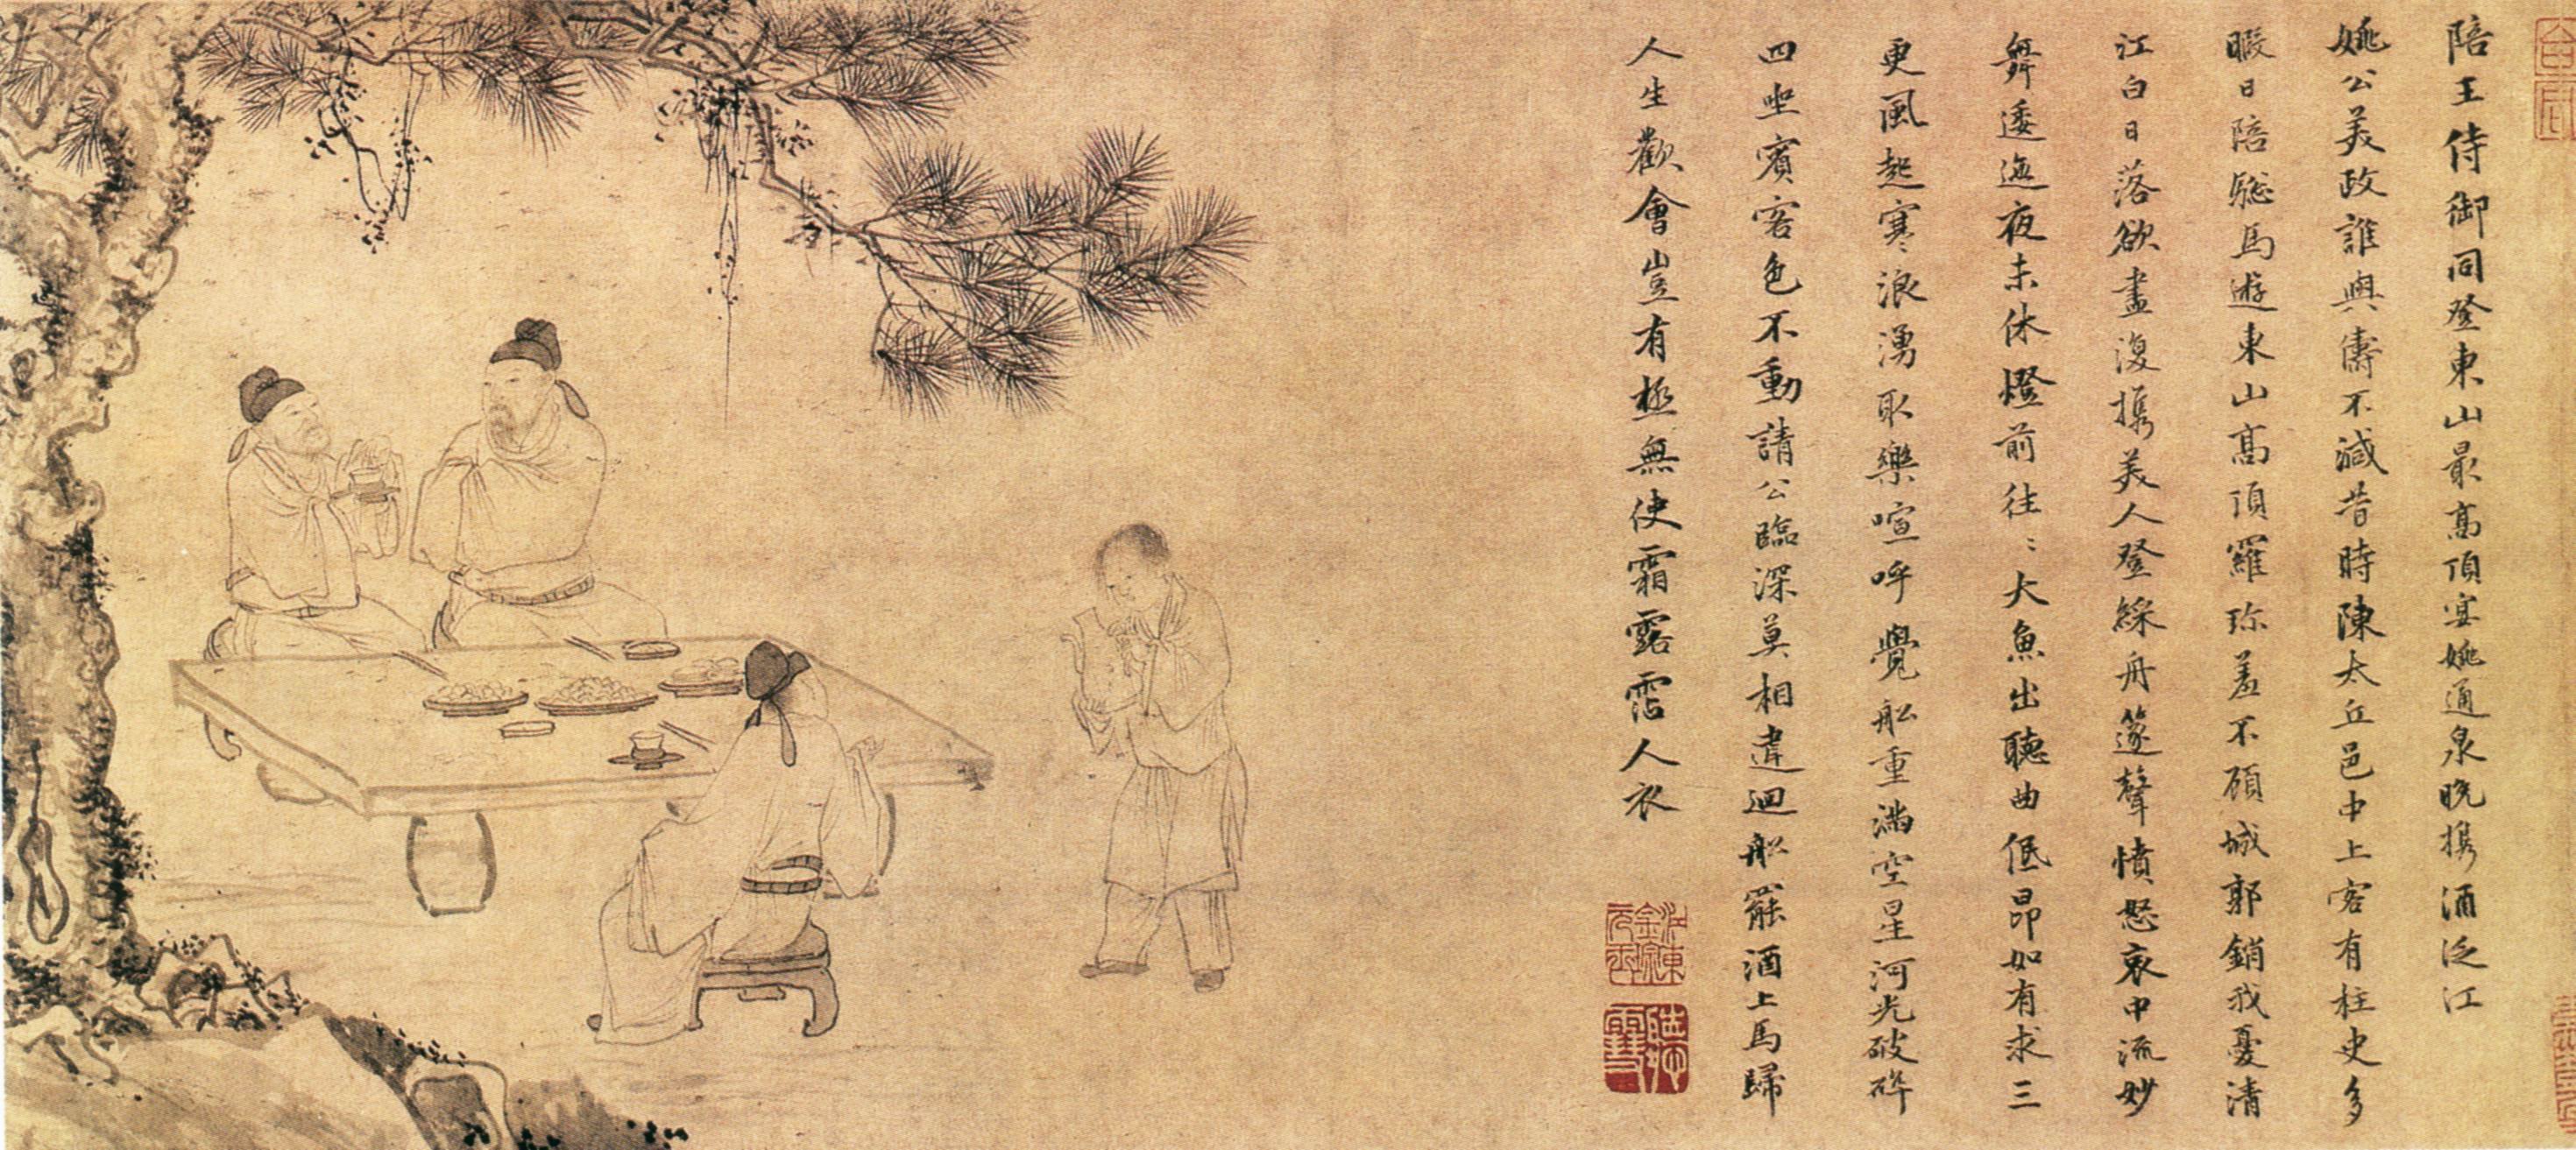 陪王侍御同登東山最高頂宴姚通泉晚攜酒泛江
姚公美政誰與儔不減昔時陳太丘邑中上客有柱史多
暇日陪驄馬遊東山高頂羅珎羞不顧城郭銷我憂清
江白日落欲盡復攜美人登綵舟笛聲憤怒哀中流妙
舞逶迤夜未休燈前往〻大魚出聽曲低昂如有求三
更風起寒浪湧取樂喧呼覺船重滿空星河光破碎
四坐賓客色不動請公臨深莫相違迴船罷酒上馬歸
人生歡會豈有極無使霜露霑人衣